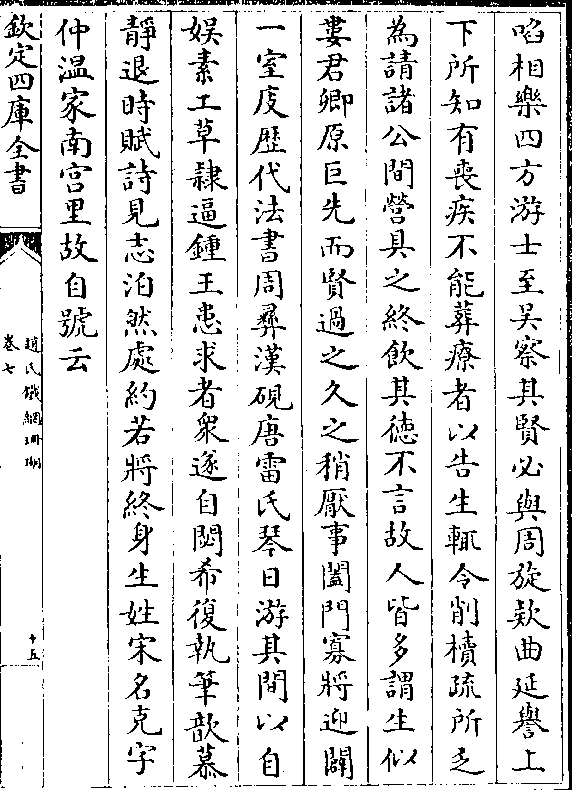 啗相樂四方游士至吴察其賢必與周旋欵曲延譽上
下所知有喪疾不能葬療者以告生輒令削櫝疏所乏
為請諸公間營具之終飲其徳不言故人皆多謂生似
婁君卿原巨先而賢過之久之稍厭事闔門寡將迎闢
一室庋歴代法書周彞漢硯唐雷氏琴日游其間以自
娯素工草隸逼鍾王患求者衆遂自閟希復執筆歆慕
靜退時賦詩見志泊然處約若將終身生姓宋名克字
仲温家南宫里故自號云
欽定四庫全書
趙氏鐵網珊瑚
卷七
十五